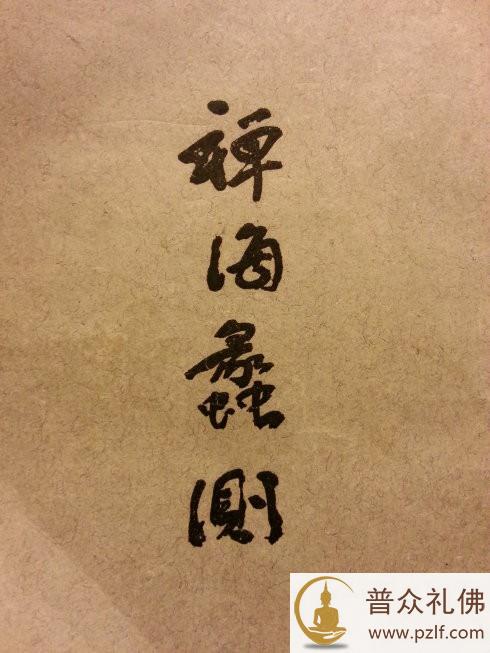 禅海蠡测
普众礼佛
www.pzlf.com